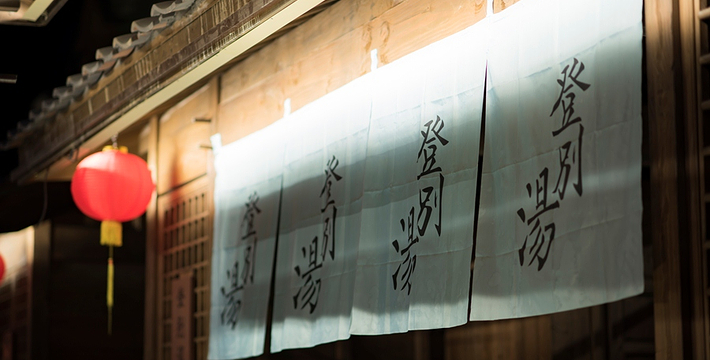 登別湯
登別湯
登別湯
登別湯